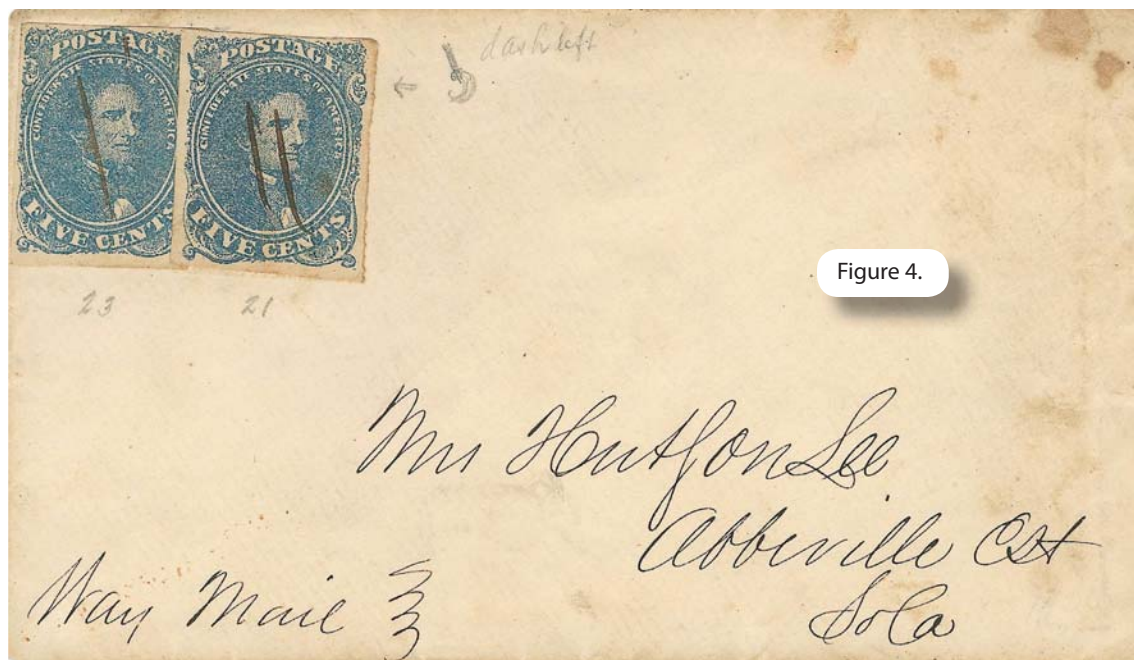 POSTAGE
CONFEDERATE STATES OF AMERICA
FIVE CENTS
POSTAGE
CONFEDERATE STATES OF AMERICA
FIVE CENTS
← 5 dash left
23 21
Figure 4.
Mrs Hutson Lee
Abbeville CH
So Ca
Way Mail